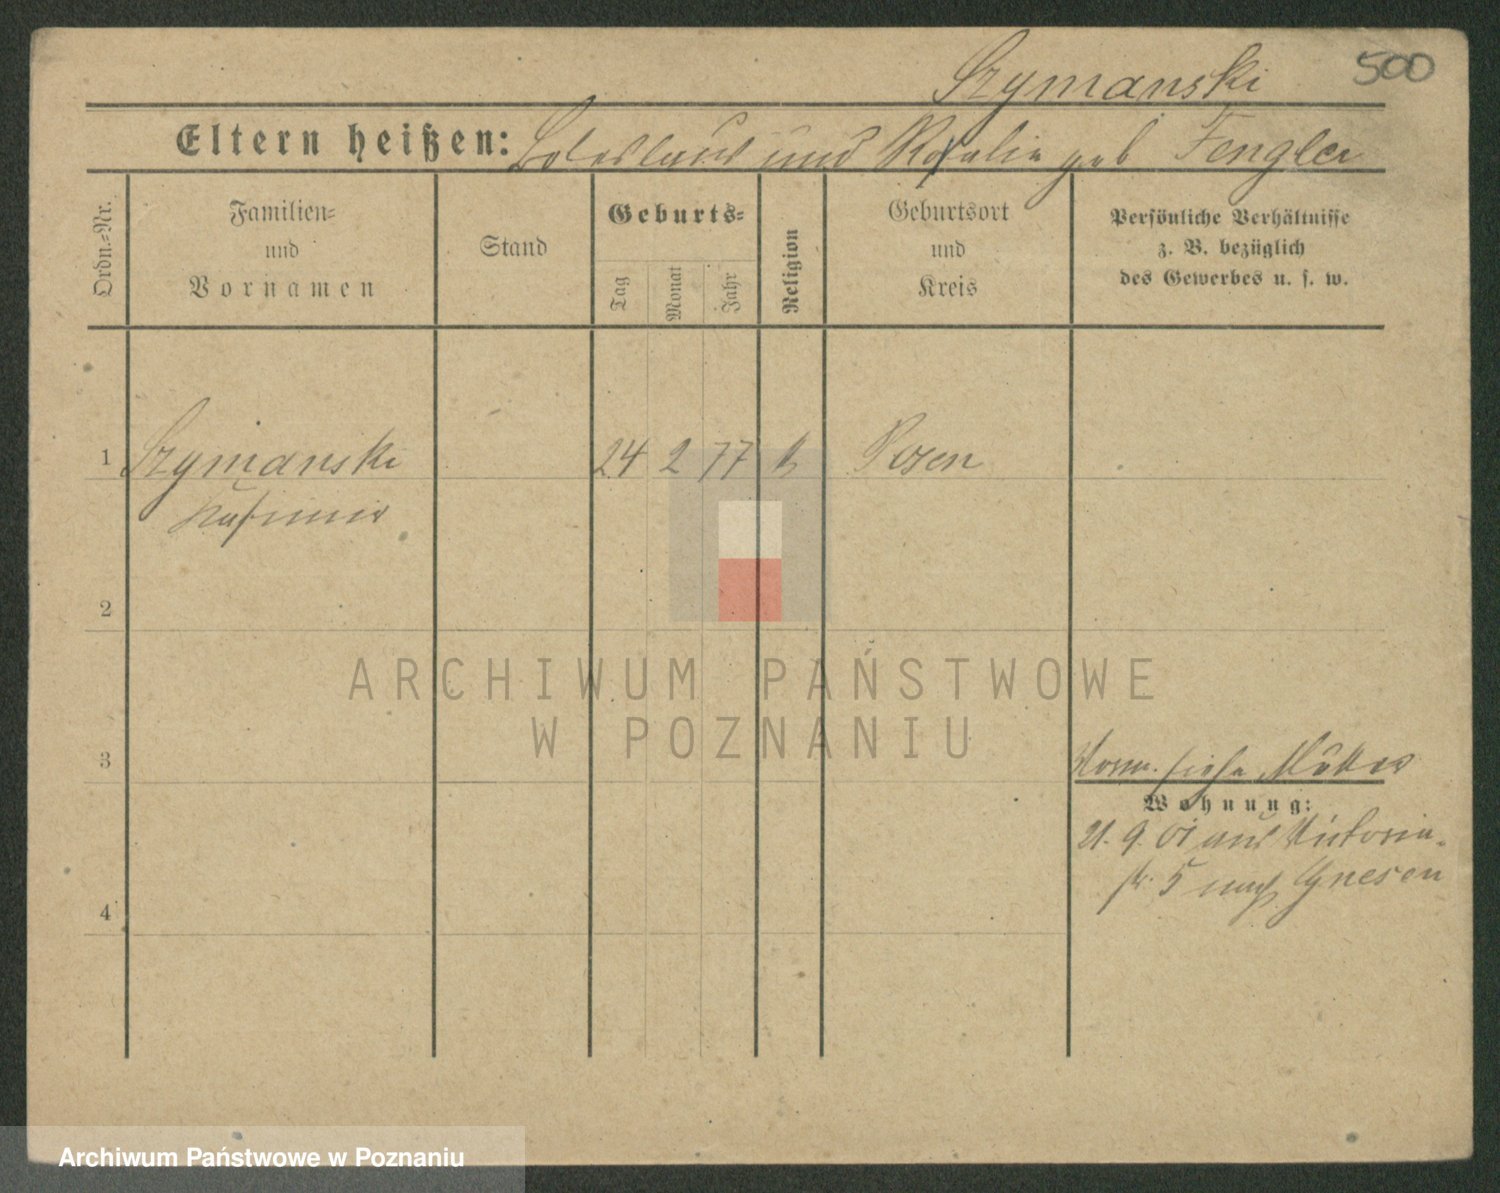 Szymanski
500
Eltern heißen: Boleslaus und Rosalie geb Fengler
Ordn.-Nr.
Familien-
und
Vornamen
Stand
Geburts-
Tag
Monat
Jahr
Religion
Geburtsort
und
Kreis
Persönliche Verhältnisse
z. B. bezüglich
des Gewerbes u. s. w.
1 Szymanski 24 2 77 k Posen
Kasimir
2
3
4
siehe Mutter
Wohnung:
21. 9. 01 aus Victoria-
str. 5 nach Gnesen
ARCHIWUM PAŃSTWOWE
W POZNANIU
Archiwum Państwowe w Poznaniu